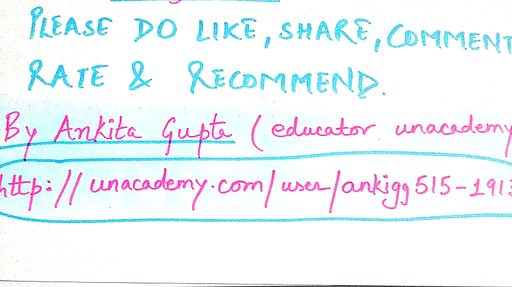 PLEASE DO LIKE, SHARE, COMMENT
RATE & RECOMMEND.
By Ankita Gupta ( educator unacademy
http://unacademy.com/user/ankigg515-1913